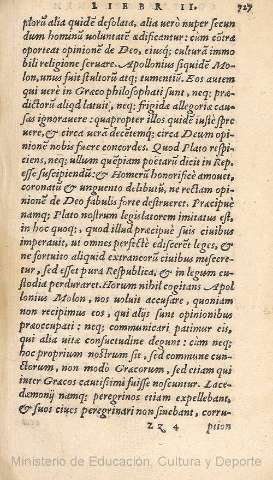 LIBER II. 727
ptorũ alia quidẽ desolata, alia verò nuper secun
dum hominũ voluntatẽ ædificantur: cum cõtra
oporteat opinionẽ de Deo, eiusq; culturã immo
bili religione seruare. Apollonius siquidẽ Mo-
lon, vnus fuit stultorũ atq; tumentiũ. Eos autem
qui verè in Græco philosophati sunt, neq; præ-
dictorũ aliqd latuit, neq; frigida allegoriæ cau-
sas ignorauere: quapropter illos quidẽ iustè spre
uere, & circa verã decẽtemq; circa Deum opini
onẽ nobis fuere concordes. Quod Plato respi-
ciens, neq; vllum quẽpiam poëtarũ dicit in Rep.
esse suscipiendũ: & Homerũ honorificè amouet,
coronatũ & vnguento delibutũ, ne rectam opi-
nionẽ de Deo fabulis forte destrueret. Præcipuè
namq; Plato nostrum legislatorem imitatus est,
in hoc quoq;, quod illud præcipuè suis ciuibus
imperauit, vt omnes perfectè edisceret leges, &
ne fortuitò aliquid extraneorũ ciuibus miscere-
tur, sed esset pura Respublica, & in legum cu-
stodia perduraret. Horum nihil cogitans Apol
lonius Molon, nos voluit accusare, quoniam
non recipimus eos, qui alijs sunt opinionibus
præoccupati: neq; communicari patimur eis,
qui alia vitæ consuetudine degunt: cùm neq;
hoc proprium nostrum sit, sed commune cun-
ctorum, non modò Græcorum, sed etiam qui
inter Græcos cautissimi fuisse noscuntur. Lace-
dæmonij namq; peregrinos etiam expellebant,
& suos ciues peregrinari non sinebant, corru-
Z z 4 ption
Ministerio de Educación, Cultura y Deporte